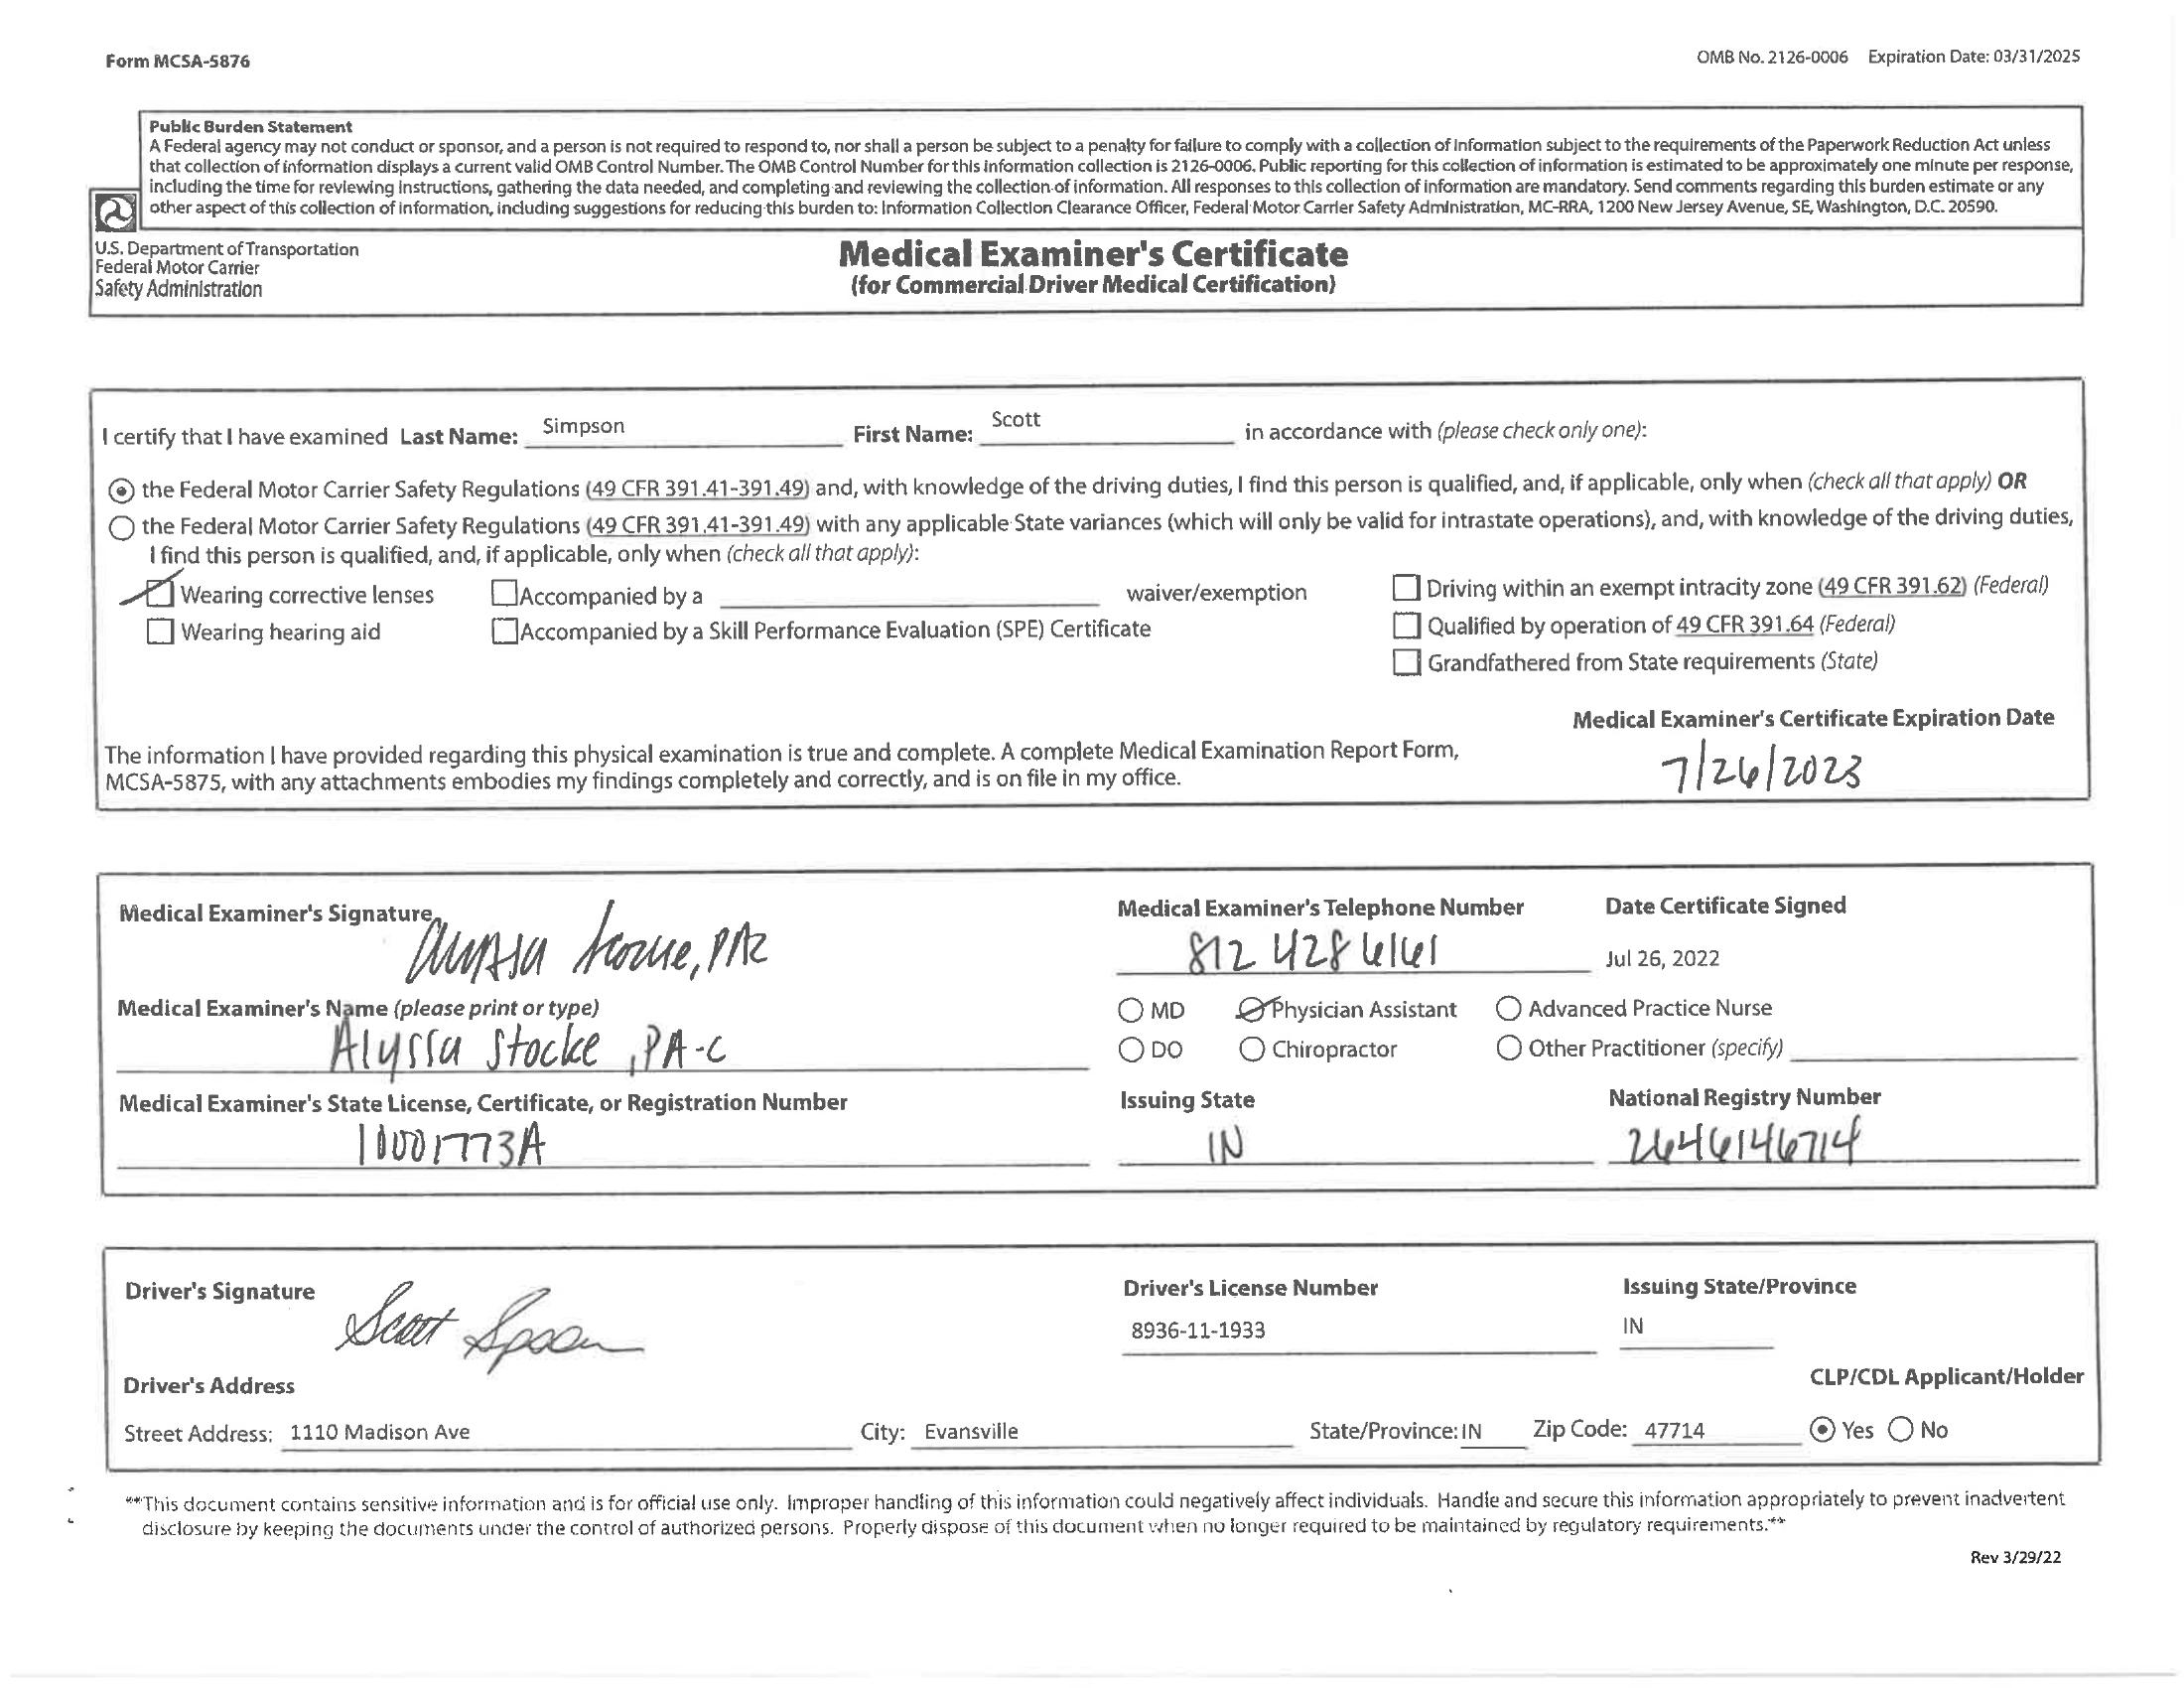 Form MCSA-5876
OMB No. 2126-0006 Expiration Date: 03/31/2025
Public Burden Statement
A Federal agency may not conduct or sponsor, and a person is not required to respond to, nor shall a person be subject to a penalty for failure to comply with a collection of information subject to the requirements of the Paperwork Reduction Act unless
that collection of information displays a current valid OMB Control Number. The OMB Control Number for this information collection is 2126-0006. Public reporting for this collection of information is estimated to be approximately one minute per response,
including the time for reviewing instructions, gathering the data needed, and completing and reviewing the collection of information. All responses to this collection of information are mandatory. Send comments regarding this burden estimate or any
other aspect of this collection of information, including suggestions for reducing this burden to: Information Collection Clearance Officer, Federal Motor Carrier Safety Administration, MC-RRA, 1200 New Jersey Avenue, SE, Washington, D.C. 20590.
U.S. Department of Transportation
Federal Motor Carrier
Safety Administration
Medical Examiner's Certificate
(for Commercial Driver Medical Certification)
I certify that I have examined Last Name: Simpson First Name: Scott in accordance with (please check only one):
the Federal Motor Carrier Safety Regulations (49 CFR 391.41-391.49) and, with knowledge of the driving duties, I find this person is qualified, and, if applicable, only when (check all that apply) OR
the Federal Motor Carrier Safety Regulations (49 CFR 391.41-391.49) with any applicable State variances (which will only be valid for intrastate operations), and, with knowledge of the driving duties,
I find this person is qualified, and, if applicable, only when (check all that apply):
Wearing corrective lenses Accompanied by a waiver/exemption Driving within an exempt intracity zone (49 CFR 391.62) (Federal)
Wearing hearing aid Accompanied by a Skill Performance Evaluation (SPE) Certificate Qualified by operation of 49 CFR 391.64 (Federal)
Grandfathered from State requirements (State)
Medical Examiner's Certificate Expiration Date
The information I have provided regarding this physical examination is true and complete. A complete Medical Examination Report Form,
MCSA-5875, with any attachments embodies my findings completely and correctly, and is on file in my office.
7/26/2023
Medical Examiner's Signature Medical Examiner's Telephone Number Date Certificate Signed
812 428 6161 Jul 26, 2022
Medical Examiner's Name (please print or type) MD Physician Assistant Advanced Practice Nurse
Alyssa Stocke, PA-C DO Chiropractor Other Practitioner (specify)
Medical Examiner's State License, Certificate, or Registration Number Issuing State National Registry Number
10001773A IN 2646146714
Driver's Signature Driver's License Number Issuing State/Province
Scott 8936-11-1933 IN
Driver's Address CLP/CDL Applicant/Holder
Street Address: 1110 Madison Ave City: Evansville State/Province: IN Zip Code: 47714 Yes No
**This document contains sensitive information and is for official use only. Improper handling of this information could negatively affect individuals. Handle and secure this information appropriately to prevent inadvertent
disclosure by keeping the documents under the control of authorized persons. Properly dispose of this document when no longer required to be maintained by regulatory requirements.**
Rev 3/29/22